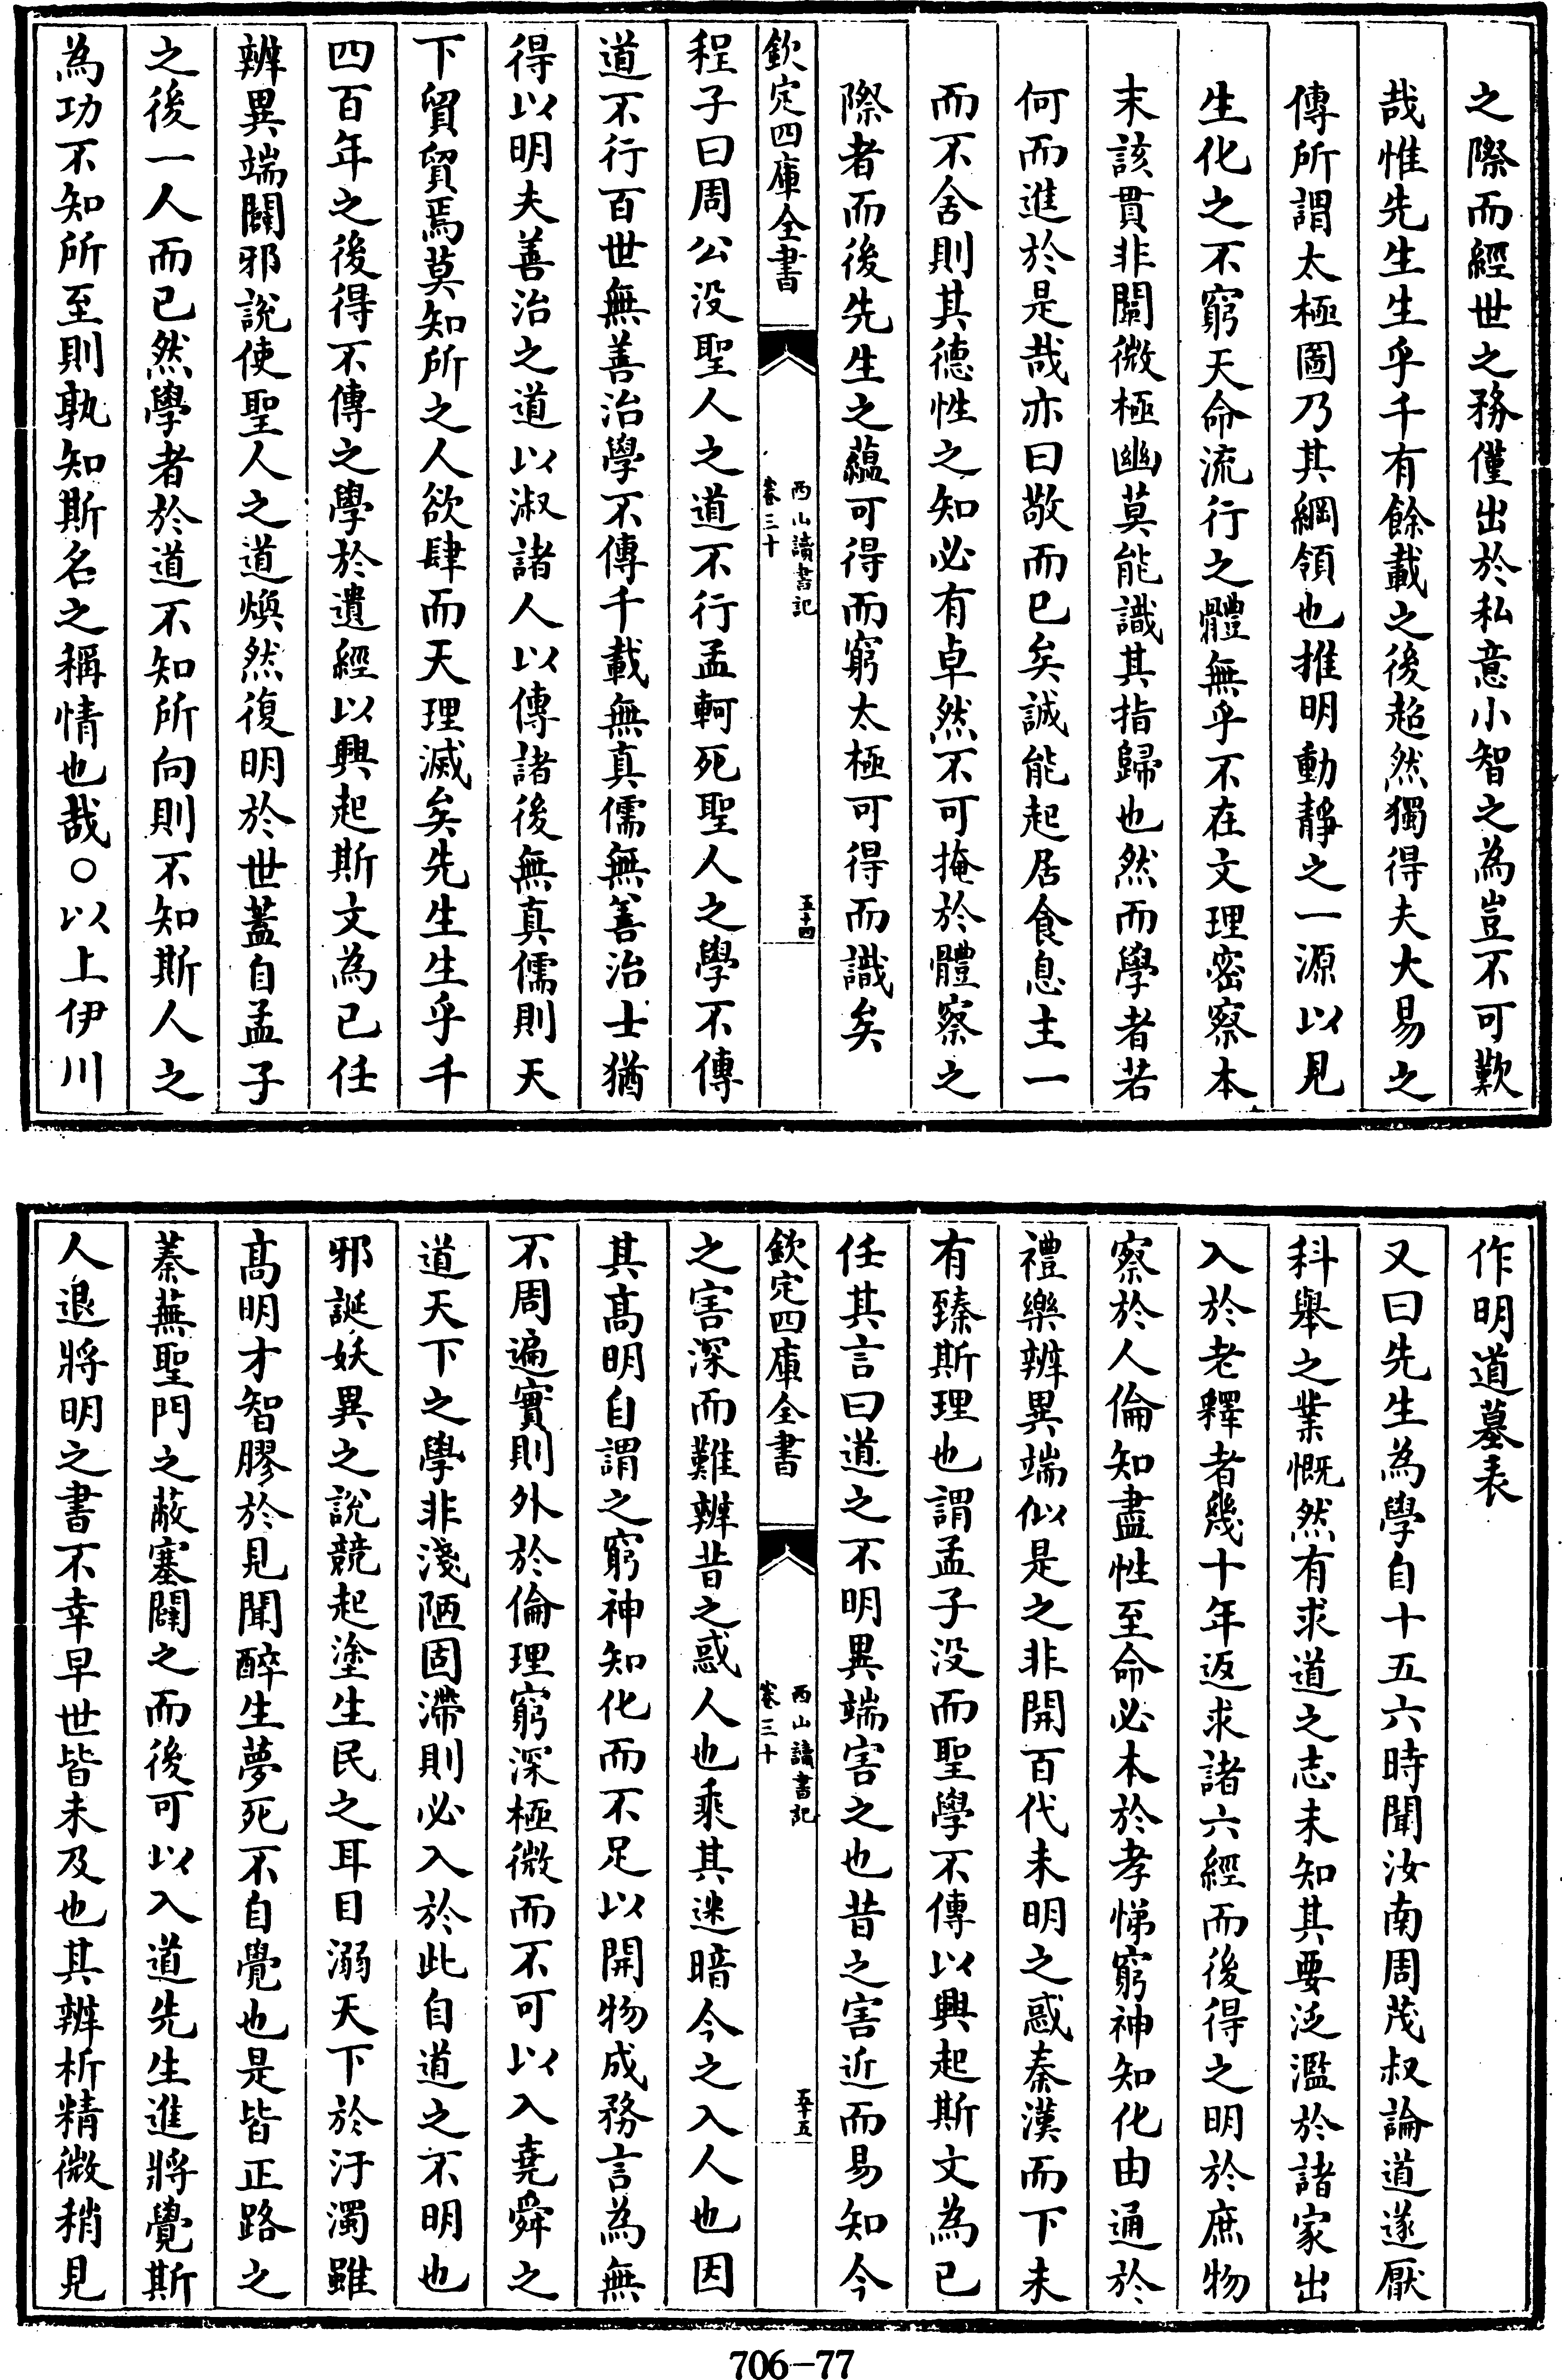 之際而經世之務僅出於私意小智之為豈不可歎
哉惟先生生乎千有餘載之後超然獨得夫大易之
傳所謂太極圖乃其綱領也推明動靜之一源以見
生化之不窮天命流行之體無乎不在文理密察本
末該貫非闡微極幽莫能識其指歸也然而學者若
何而進於是哉亦曰敬而已矣誠能起居食息主一
而不舍則其德性之知必有卓然不可掩於體察之
際者而後先生之蘊可得而窮太極可得而識矣
欽定四庫全書
西山讀書記
卷三十
五十四
程子曰周公没聖人之道不行孟軻死聖人之學不傳
道不行百世無善治學不傳千載無真儒無善治士猶
得以明夫善治之道以淑諸人以傳諸後無真儒則天
下貿貿焉莫知所之人欲肆而天理滅矣先生生乎千
四百年之後得不傳之學於遺經以興起斯文為已任
辨異端闢邪說使聖人之道煥然復明於世蓋自孟子
之後一人而已然學者於道不知所向則不知斯人之
為功不知所至則孰知斯名之稱情也哉○以上伊川
作明道墓表
又曰先生為學自十五六時聞汝南周茂叔論道遂厭
科舉之業慨然有求道之志未知其要泛濫於諸家出
入於老釋者幾十年返求諸六經而後得之明於庶物
察於人倫知盡性至命必本於孝悌窮神知化由通於
禮樂辨異端似是之非開百代未明之惑秦漢而下未
有臻斯理也謂孟子没而聖學不傳以興起斯文為已
任其言曰道之不明異端害之也昔之害近而易知今
欽定四庫全書
西山讀書記
卷三十
五十五
之害深而難辨昔之惑人也乘其迷暗今之入人也因
其髙明自謂之窮神知化而不足以開物成務言為無
不周遍實則外於倫理窮深極微而不可以入堯舜之
道天下之學非淺陋固滯則必入於此自道之不明也
邪誕妖異之說競起塗生民之耳目溺天下於汙濁雖
髙明才智膠於見聞醉生夢死不自覺也是皆正路之
蓁蕪聖門之蔽塞闢之而後可以入道先生進將覺斯
人退將明之書不幸早世皆未及也其辨析精微稍見
706-77